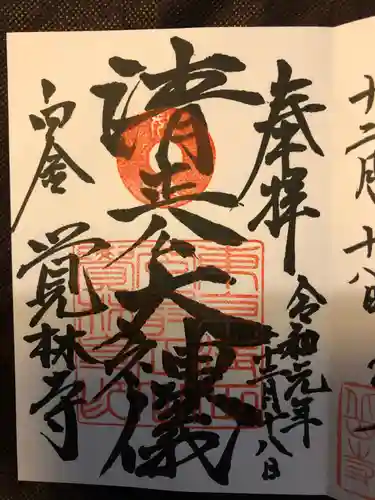 十二月十八日
奉拝
令和元年
十二月十八日
清正公大神儀
白金
覚林寺